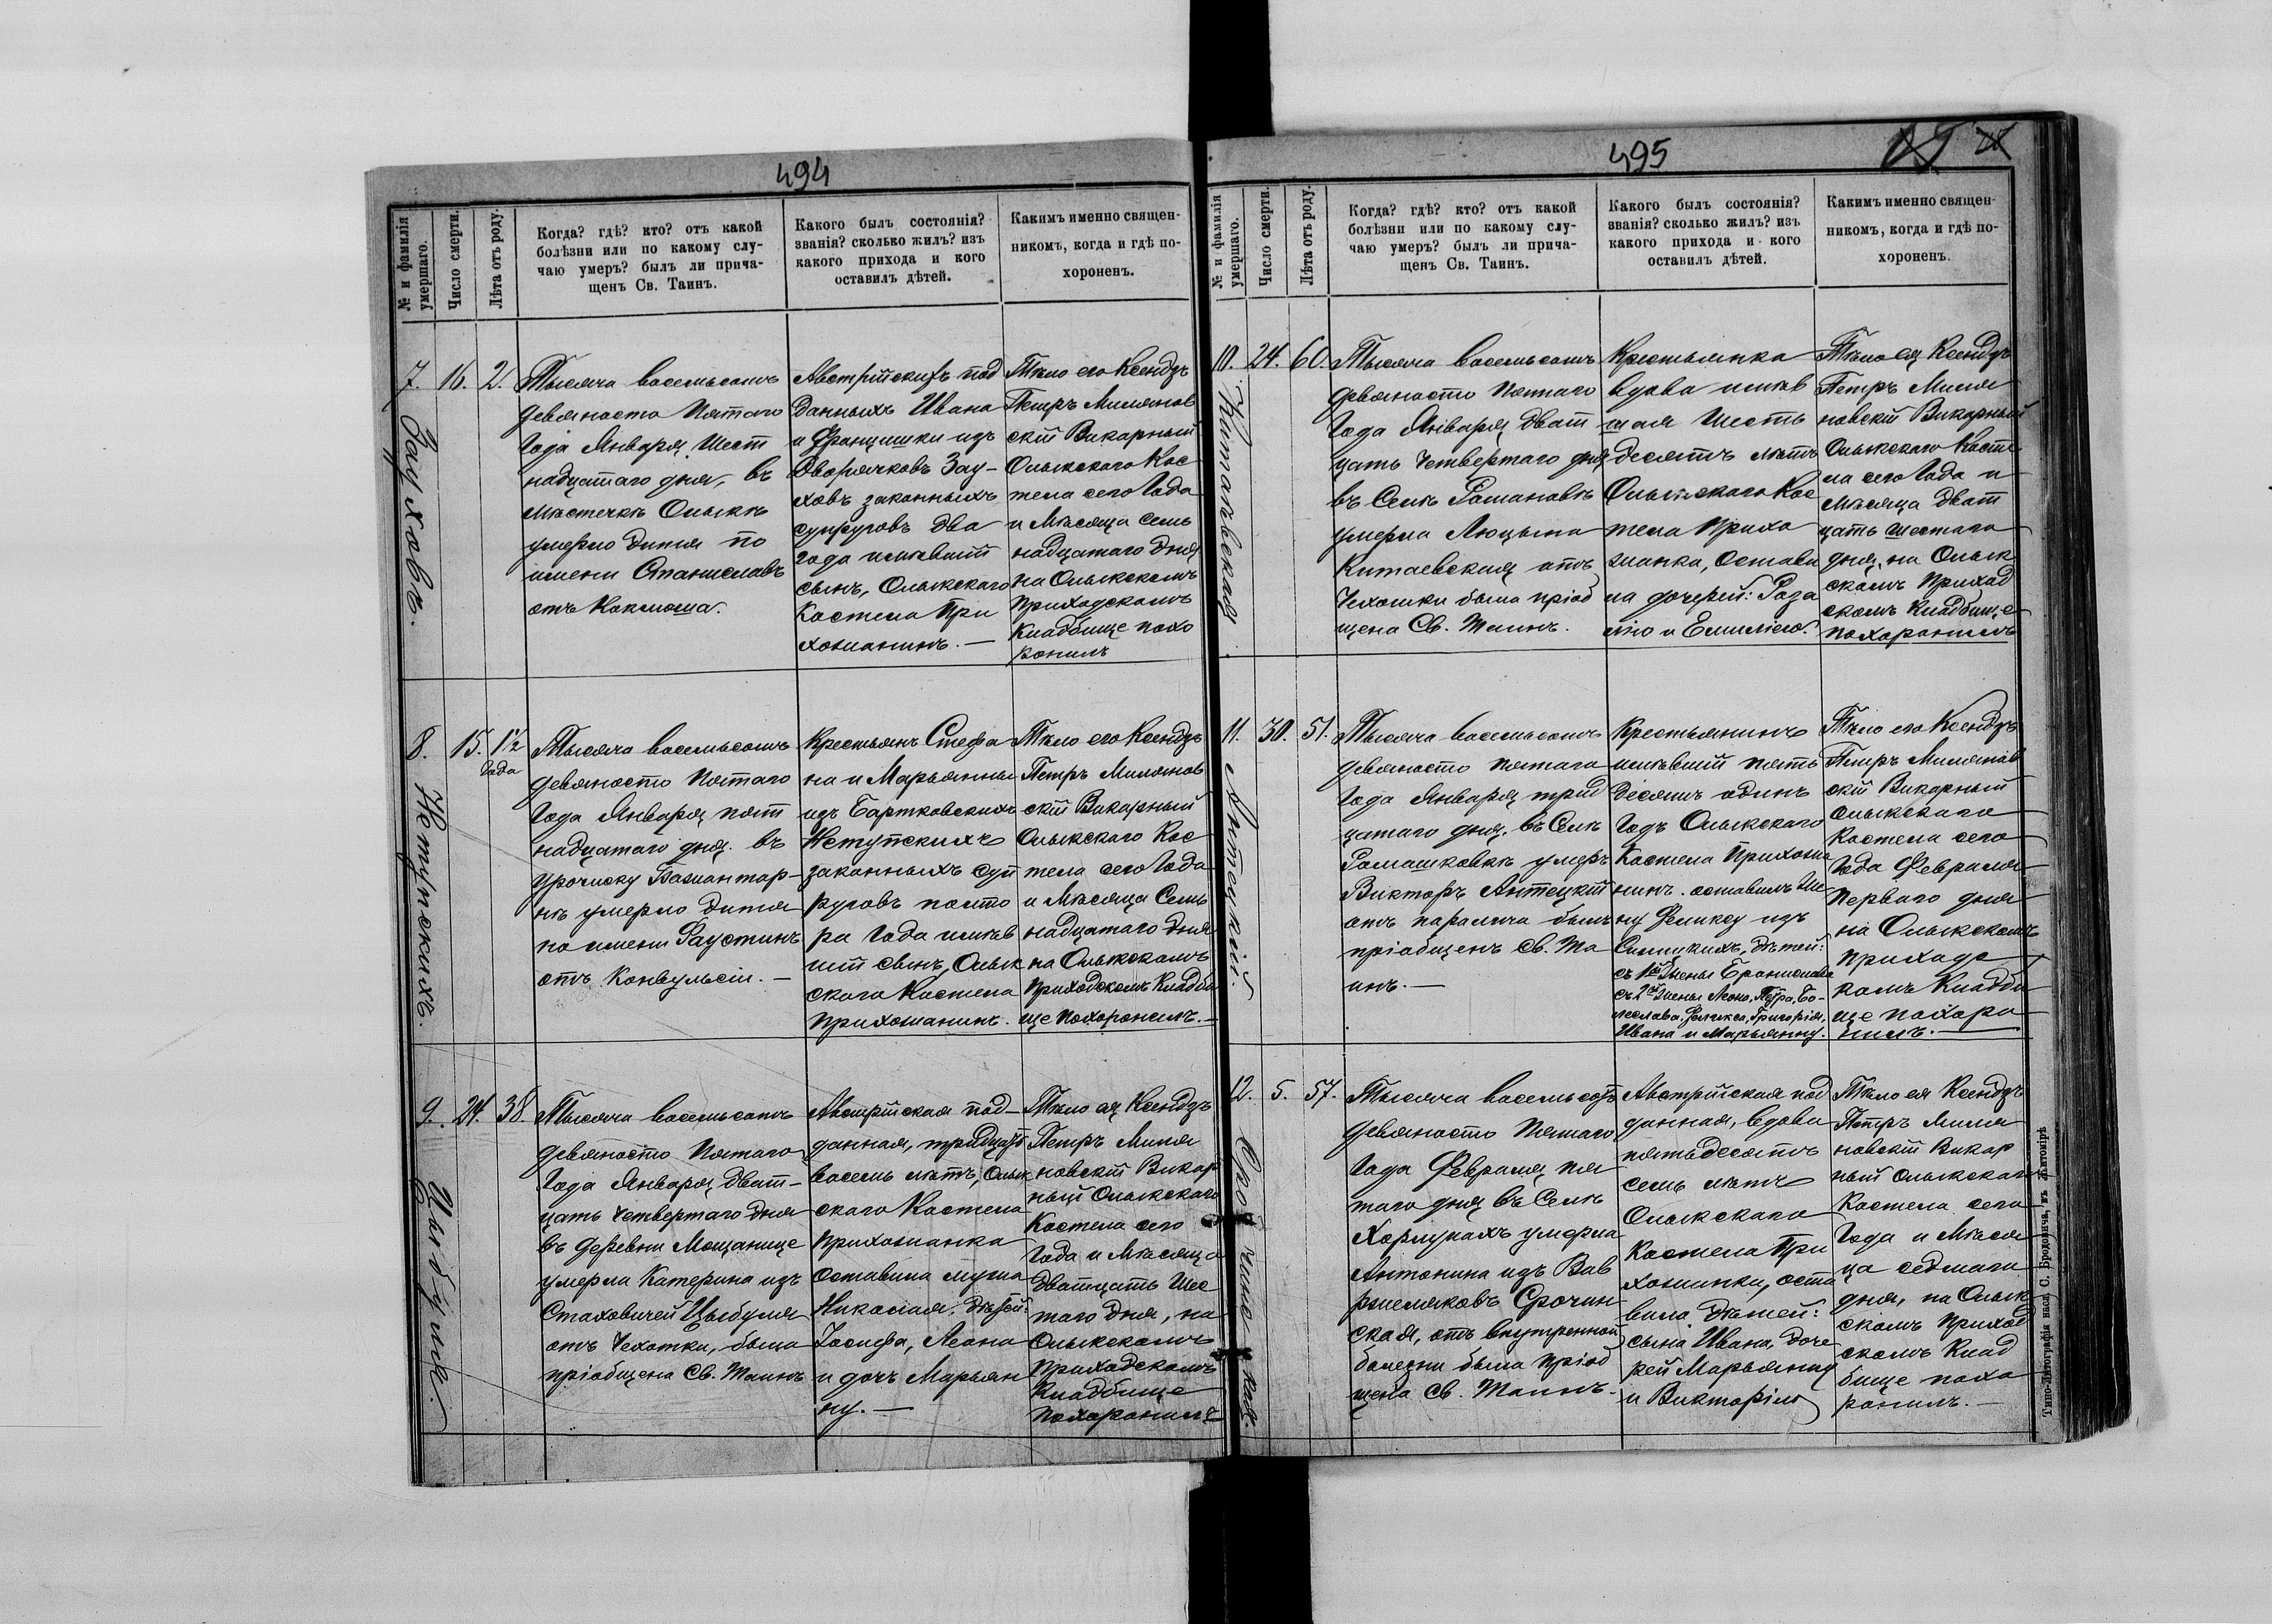 494
№ и фамилія умершаго.
Число смерти.
Лѣта отъ роду.
Когда? гдѣ? кто? отъ какой
болѣзни или по какому слу-
чаю умеръ? былъ ли прича-
щенъ Св. Таинъ.
Какого былъ состоянія?
званія? сколько жилъ? изъ
какого прихода и кого
оставилъ дѣтей.
Какимъ именно священ-
никомъ, когда и гдѣ по-
хороненъ.
7.
16.
2.
Тысяча восемьсотъ
девяносто Пятаго
Года Января, Шест
надцатаго дня, въ
Мѣстечкѣ Олыкѣ
умерло дитя по
имени Станиславъ
отъ Коклюша.
Австрійскихъ под
данныхъ Ивана
и Францишки изъ
Дворячковъ Зау-
ховъ законныхъ
супруговъ два
года имѣвшій
сынъ, Олыкскаго
Костела При
хожанинъ. —
Тѣло его Ксендзъ
Петръ Милянов
скій Викарный
Олыкскаго Кос
тела сего Года
и Мѣсяца семь
надцатаго дня
на Олыкскомъ
приходскомъ
Кладбище похо
ронилъ
8. Нетупскихъ.
15.
1½
Года
Тысяча восемьсотъ
девяносто Пятаго
Года Января, пят
надцатаго дня. въ
Урочиску
умерло дитя
по имени Фаустинъ
отъ Конвульсіи. —
Крестьянъ Стефа
на и Марьянны
изъ Бартковскихъ
Нетупскихъ
законныхъ суп
руговъ полто
ра Года имѣв
шій сынъ, Олык
скаго Костела
прихожанинъ.
Тѣло его Ксендзъ
Петръ Милянов
скій Викарный
Олыкскаго Кос
тела сего Года
и Мѣсяца Семь
надцатаго дня
на Олыкскомъ
приходскомъ Кладби
ще похоронилъ. —
9. Цыбуля.
24.
38.
Тысяча восемьсотъ
девяносто Пятаго
Года Января, дват-
цать четвертаго дня
въ деревни Мощанице
умерла Катерина изъ
Стаховичей Цыбуля
отъ Чехотки, была
пріобщена Св. Таинъ
Австрійская под-
данная, тридцать
восемь лѣтъ, Олык
скаго Костела
прихожанка
оставила мужа
Николая. дѣтей:
Іосифа, Леона
и дочь Марьян
ну. —
Тѣло ея Ксендзъ
Петръ Миля
новскій Викар
ный Олыкскаго
Костела сего
Года и Мѣсяца
двадцать Шес
таго дня, на
Олыкскомъ
Приходскомъ
Кладбище
похоронилъ
495
№ и фамилія умершаго.
Число смерти.
Лѣта отъ роду.
Когда? гдѣ? кто? отъ какой
болѣзни или по какому слу-
чаю умеръ? былъ ли прича-
щенъ Св. Таинъ.
Какого былъ состоянія?
званія? сколько жилъ? изъ
какого прихода и кого
оставилъ дѣтей.
Какимъ именно священ-
никомъ, когда и гдѣ по-
хороненъ.
10.
24.
60.
Тысяча восемьсотъ
девяносто Пятаго
Года Января, дват
цать Четвертаго дня
въ Селѣ Романовкѣ
умерла Люцына
Китаевская, отъ
Чехотки была пріоб
щена Св. Таинъ.
Крестьянка
вдова имѣв
шая Шесть
десятъ лѣтъ
Олыкскаго Кос
тела Прихо
жанка, Остави
ла дочерей: Роза
лію и Емилію.
Тѣло ея Ксендзъ
Петръ Миля
новскій Викарный
Олыкскаго Косте
ла сего Года и
Мѣсяца дват
цать шестаго
дня, на Олык
скомъ Приход
скомъ Кладбище
похоронилъ
11. Антецкій.
30.
51.
Тысяча восемьсотъ
девяносто пятаго
Года Января, трид
цатаго дня, въ Селѣ
Ромашковкѣ умеръ
Викторъ Антецкій
отъ паралича былъ
пріобщенъ Св. Та
инъ. —
Крестьянинъ
имѣвшій пять
десятъ одинъ
Годъ Олыкскаго
Костела Прихожа
нинъ. оставилъ Же
ну Феликсу изъ
дѣтей:
съ 1й Жены Бронислава
съ 2й Жены Леона, Петра, Бо-
леслава, Феликса, Григорія,
Ивана и Марьянну.
Тѣло его Ксендзъ
Петръ Милянов
скій Викарный
Олыкскаго
Костела сего
Года Февраля
перваго дня
на Олыкскомъ
приходс
комъ Кладби
ще похоро
нилъ. —
12. Срочинская.
5.
57.
Тысяча восемьсотъ
девяносто Пятаго
Года Февраля, пя
таго дня въ Селѣ
Хорлупахъ умерла
Антонина изъ Вав
Срочин
ская, отъ внутренной
болезни была пріоб
щена Св. Таинъ.
Австрійская под
данная, вдова
пятьдесятъ
семь лѣтъ
Олыкскаго
Костела При
хожанка, оста
вила дѣтей:
сына Ивана, доче
рей Марьянну
и Викторію
Тѣло ея Ксендзъ
Петръ Миля
новскій Викар
ный Олыкскаго
Костела сего
Года и Мѣся
ца седмаго
дня, на Олык
скомъ Приход
скомъ Клад
бище похо
ронилъ. —
Типо-Литографія насл. С. Бродовича, въ Житомірѣ